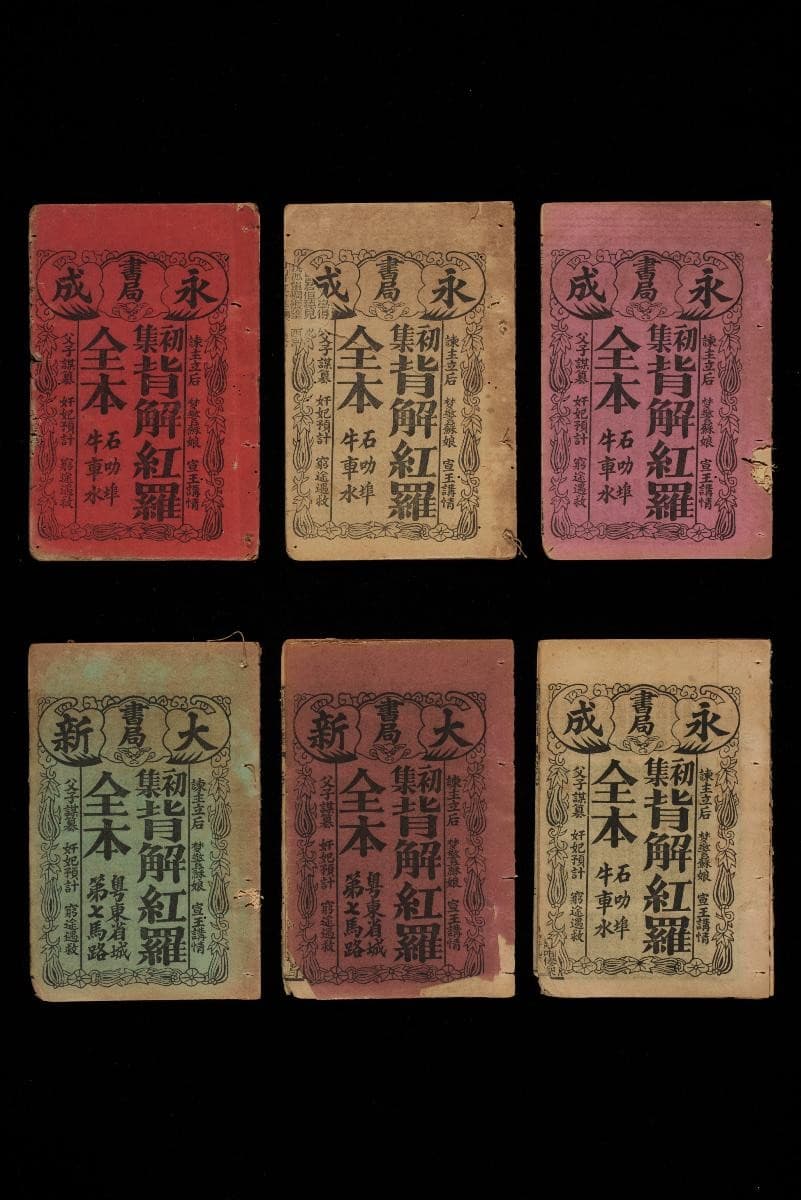 永成
書局
諫主立后 梦警蘇娘 宣王講情
初集背解紅羅
全本
石叻埠
牛車水
父子謀篡 奸妃預計 窮途遇救
永成
書局
諫主立后 梦警蘇娘 宣王講情
初集背解紅羅
全本
石叻埠
牛車水
父子謀篡 奸妃預計 窮途遇救
永成
書局
諫主立后 梦警蘇娘 宣王講情
初集背解紅羅
全本
石叻埠
牛車水
父子謀篡 奸妃預計 窮途遇救
大新
書局
諫主立后 梦警蘇娘 宣王講情
初集背解紅羅
全本
粤東省城
第七馬路
父子謀篡 奸妃預計 窮途遇救
大新
書局
諫主立后 梦警蘇娘 宣王講情
初集背解紅羅
全本
粤東省城
第七馬路
父子謀篡 奸妃預計 窮途遇救
永成
書局
諫主立后 梦警蘇娘 宣王講情
初集背解紅羅
全本
石叻埠
牛車水
父子謀篡 奸妃預計 窮途遇救